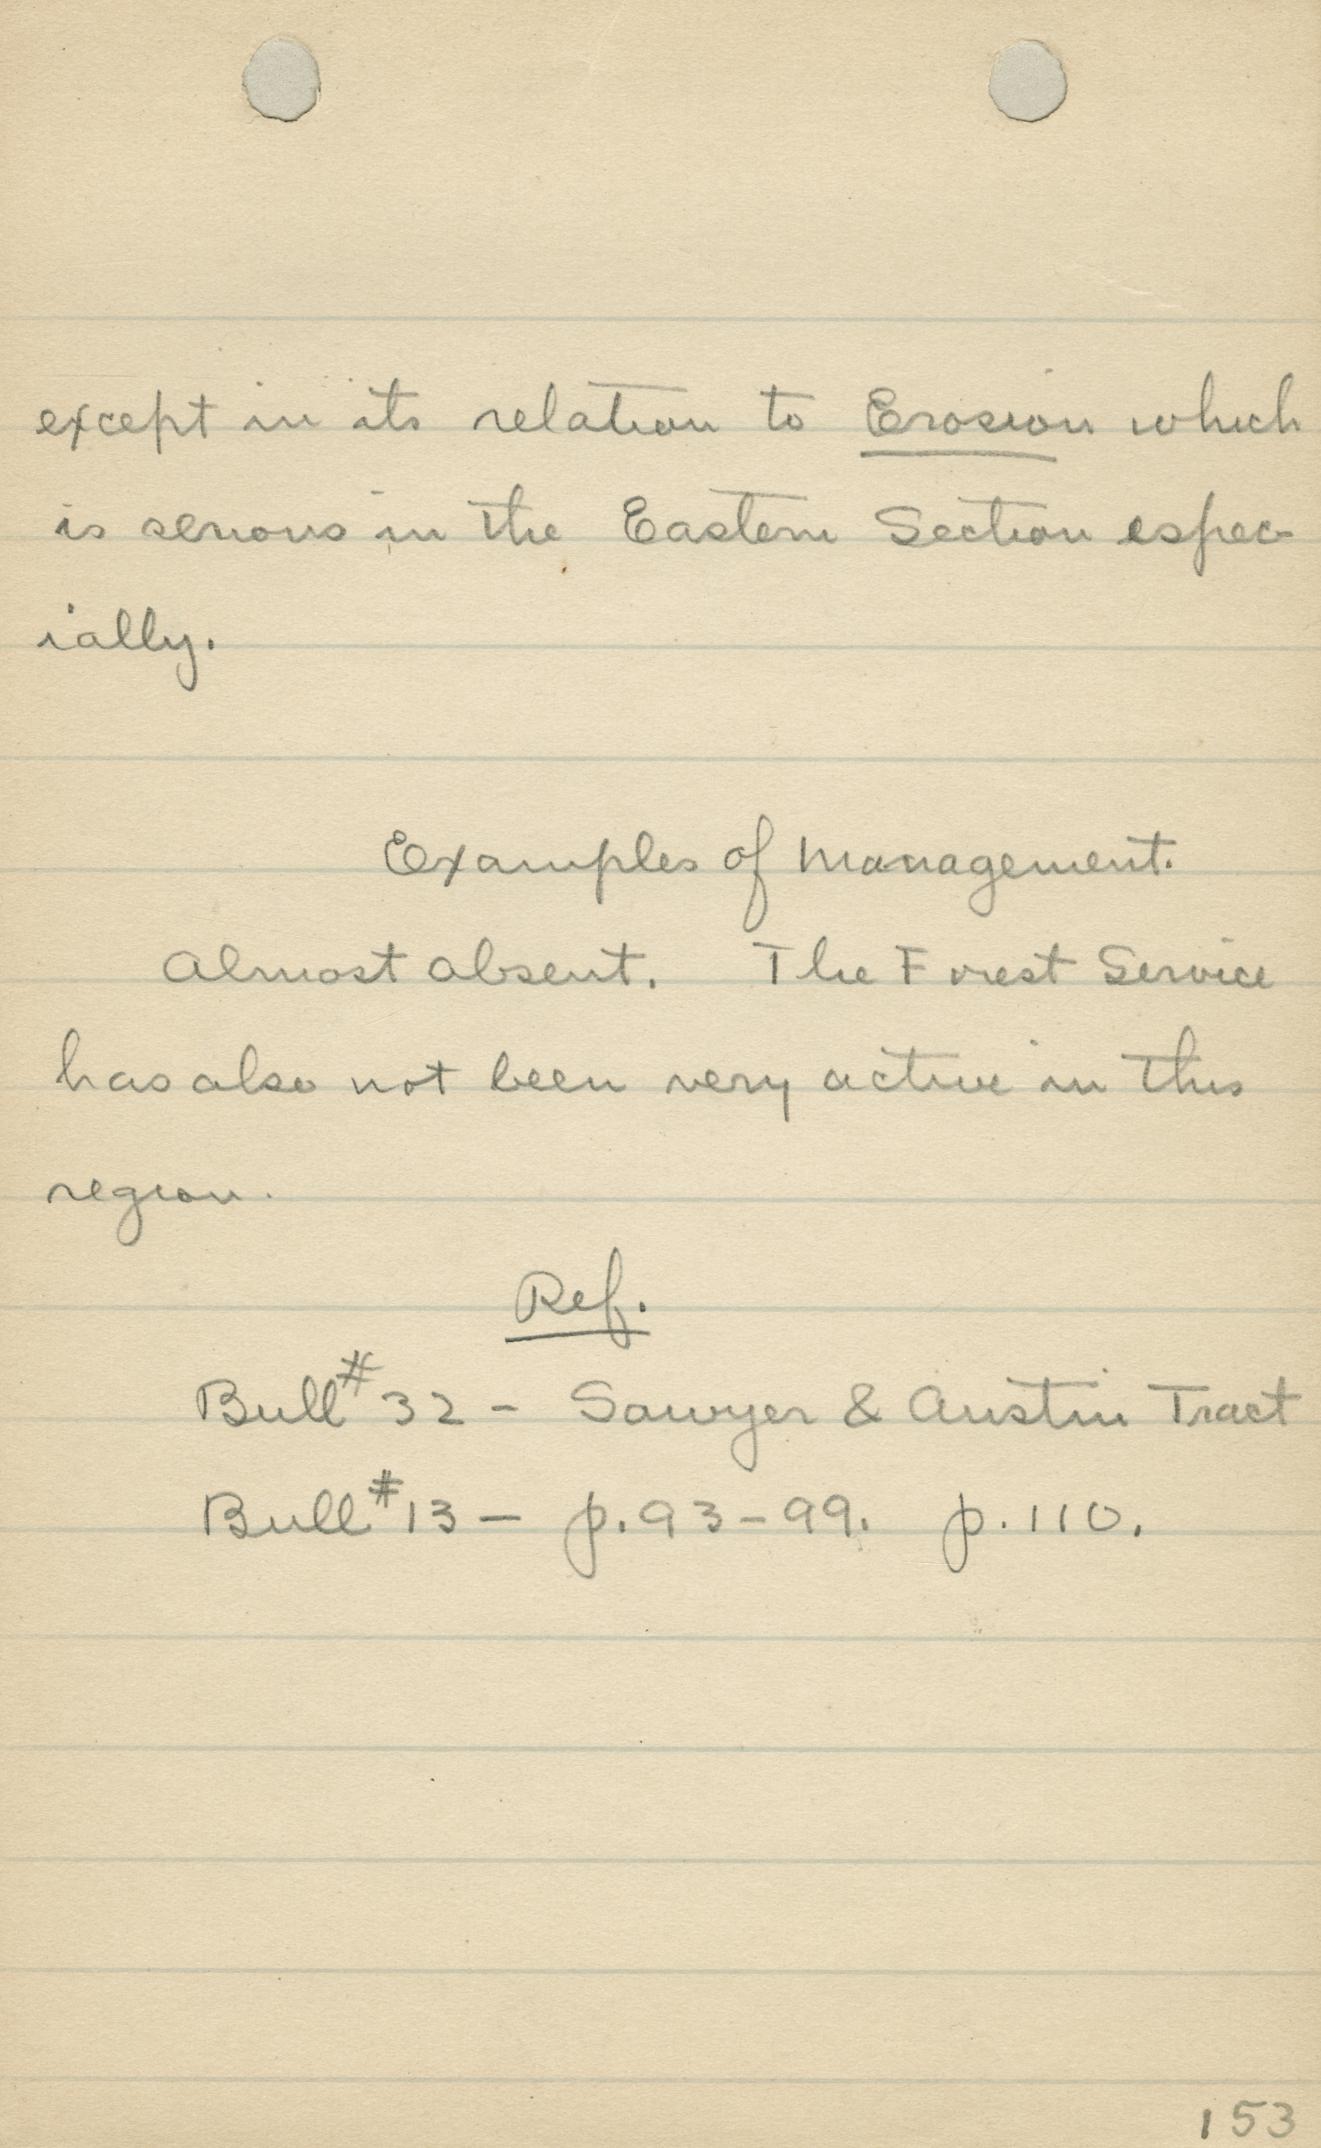 except in its relation to Erosion which
is serious in the Eastern Section espec-
ially.
Examples of Management.
Almost absent. The Forest Service
has also not been very active in this
region.
Ref.
Bull #32 - Sawyer & Austin Tract
Bull #13 - p. 93-99. p. 110.
153